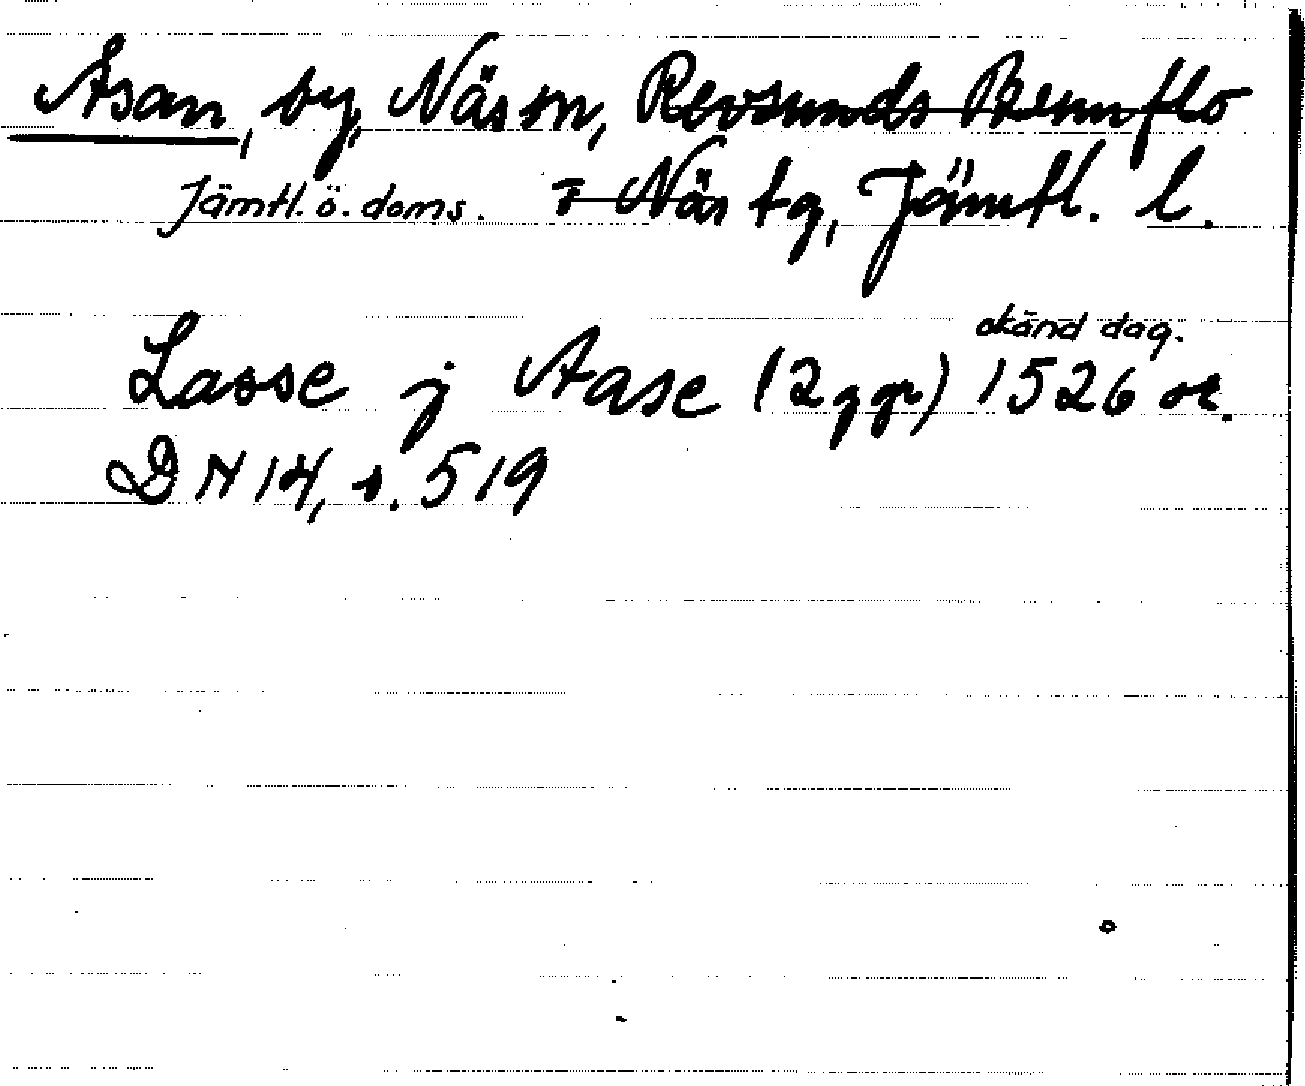 Åsan, by, Näs sn, Revsunds Brunflo
Jämtl. ö. doms. o Näs tg, Jämtl. l.
okänd dag.
Lasse j Aase (2 ggr) 1526 or.
DN 14, s. 519